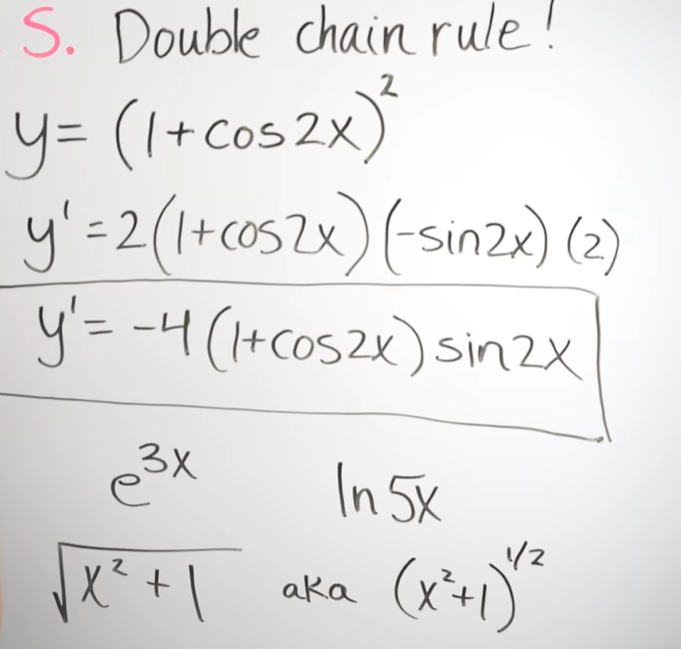 S. Double chain rule!
y = (1+cos2x)²
y' = 2(1+cos2x)(-sin2x)(2)
y' = -4(1+cos2x)sin2x
e³ˣ ln 5x
√x²+1 aka (x²+1)^1/2